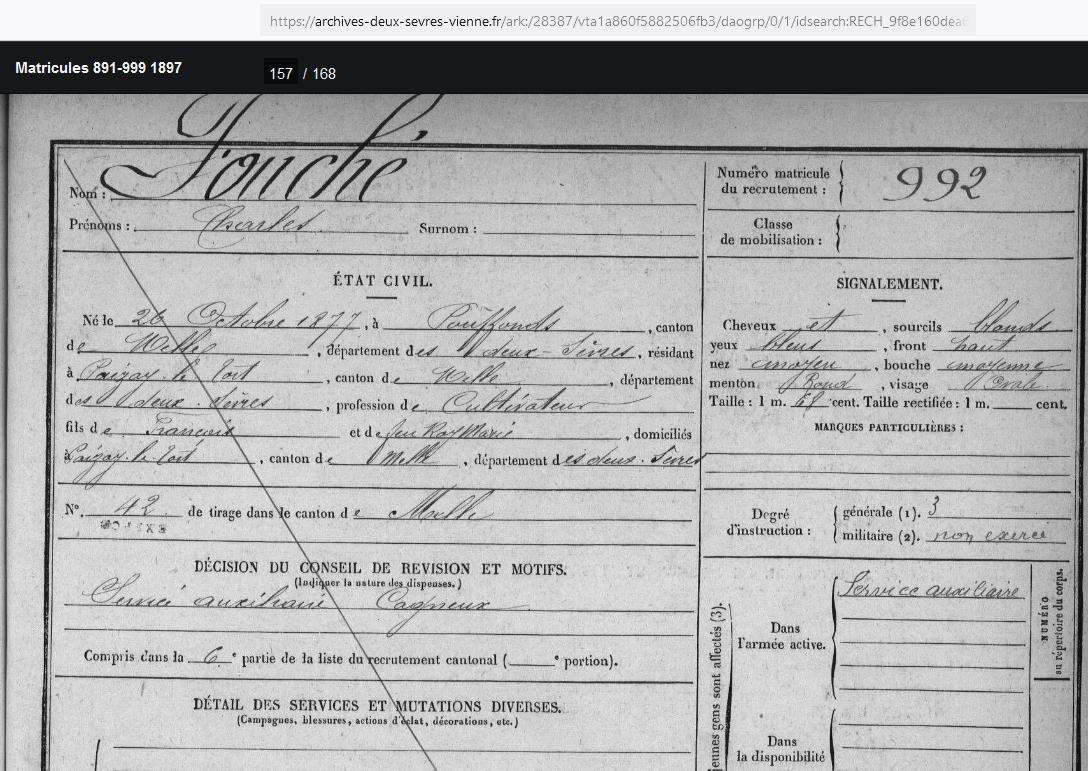 https://archives-deux-sevres-vienne.fr/ark:/28387/vta1a860f5882506fb3/daogrp/0/1/idsearch:RECH_9f8e160dea6
Matricules 891-999 1897
157 / 168
Nom : Fouché
Prénoms : Charles Surnom :
Numéro matricule du recrutement : 992
Classe de mobilisation :
ÉTAT CIVIL.
Né le 26 Octobre 1877, à Pouffonds, canton
de Melle, département des deux-Sèvres, résidant
à Paizay-le-Tort, canton de Melle, département
des deux-Sèvres, profession de Cultivateur
fils de François et de feu Roy Marie, domiciliés
à Paizay-le-Tort, canton de Melle, département des deux-Sèvres
N° 42 de tirage dans le canton de Melle
SIGNALEMENT.
Cheveux et, sourcils blonds
yeux bleus, front haut
nez moyen, bouche moyenne
menton Rond, visage Ovale
Taille : 1 m. cent. Taille rectifiée : 1 m. cent.
MARQUES PARTICULIÈRES :
Degré d'instruction : générale (1). 3
militaire (2). non exercé
DÉCISION DU CONSEIL DE REVISION ET MOTIFS.
(Indiquer la nature des dispenses.)
Service auxiliaire Cagneux
Compris dans la 6e partie de la liste du recrutement cantonal ( e portion).
DÉTAIL DES SERVICES ET MUTATIONS DIVERSES.
(Campagnes, blessures, actions d'éclat, décorations, etc.)
jeunes gens sont affectés (3).
Dans l'armée active. Service auxiliaire
Dans la disponibilité
NUMÉRO
au répertoire du corps.